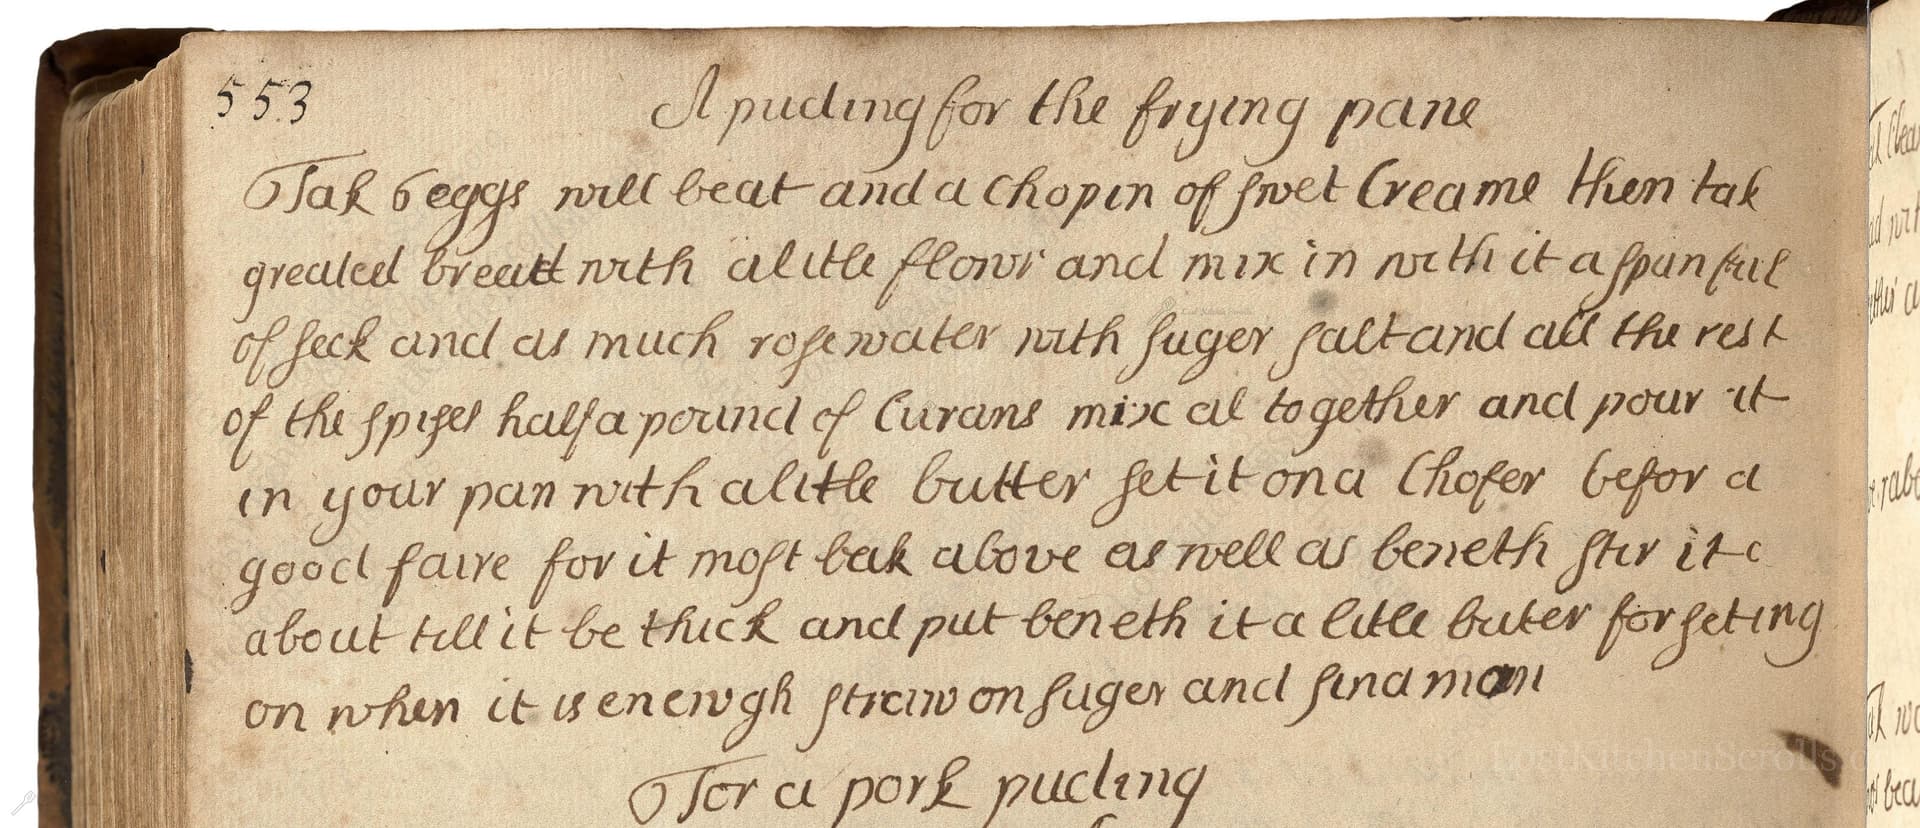 553
A puding for the frying pane
Tak 6 eggs will beat and a Chopin of swet Creame then tak
greated breatt with a litle flowr and mix in with it a spunfull
of seck and as much rosewater with suger salt and all the rest
of the spises half a pound of Curans mix al together and pour it
in your pan with a litle butter set it on a Chofer befor a
good faire for it most bak above as well as beneth stir it
about till it be thick and put beneth it a litle buter for seting
on when it is enewgh straw on suger and sinamon
For a pork puding
LostKitchenScrolls